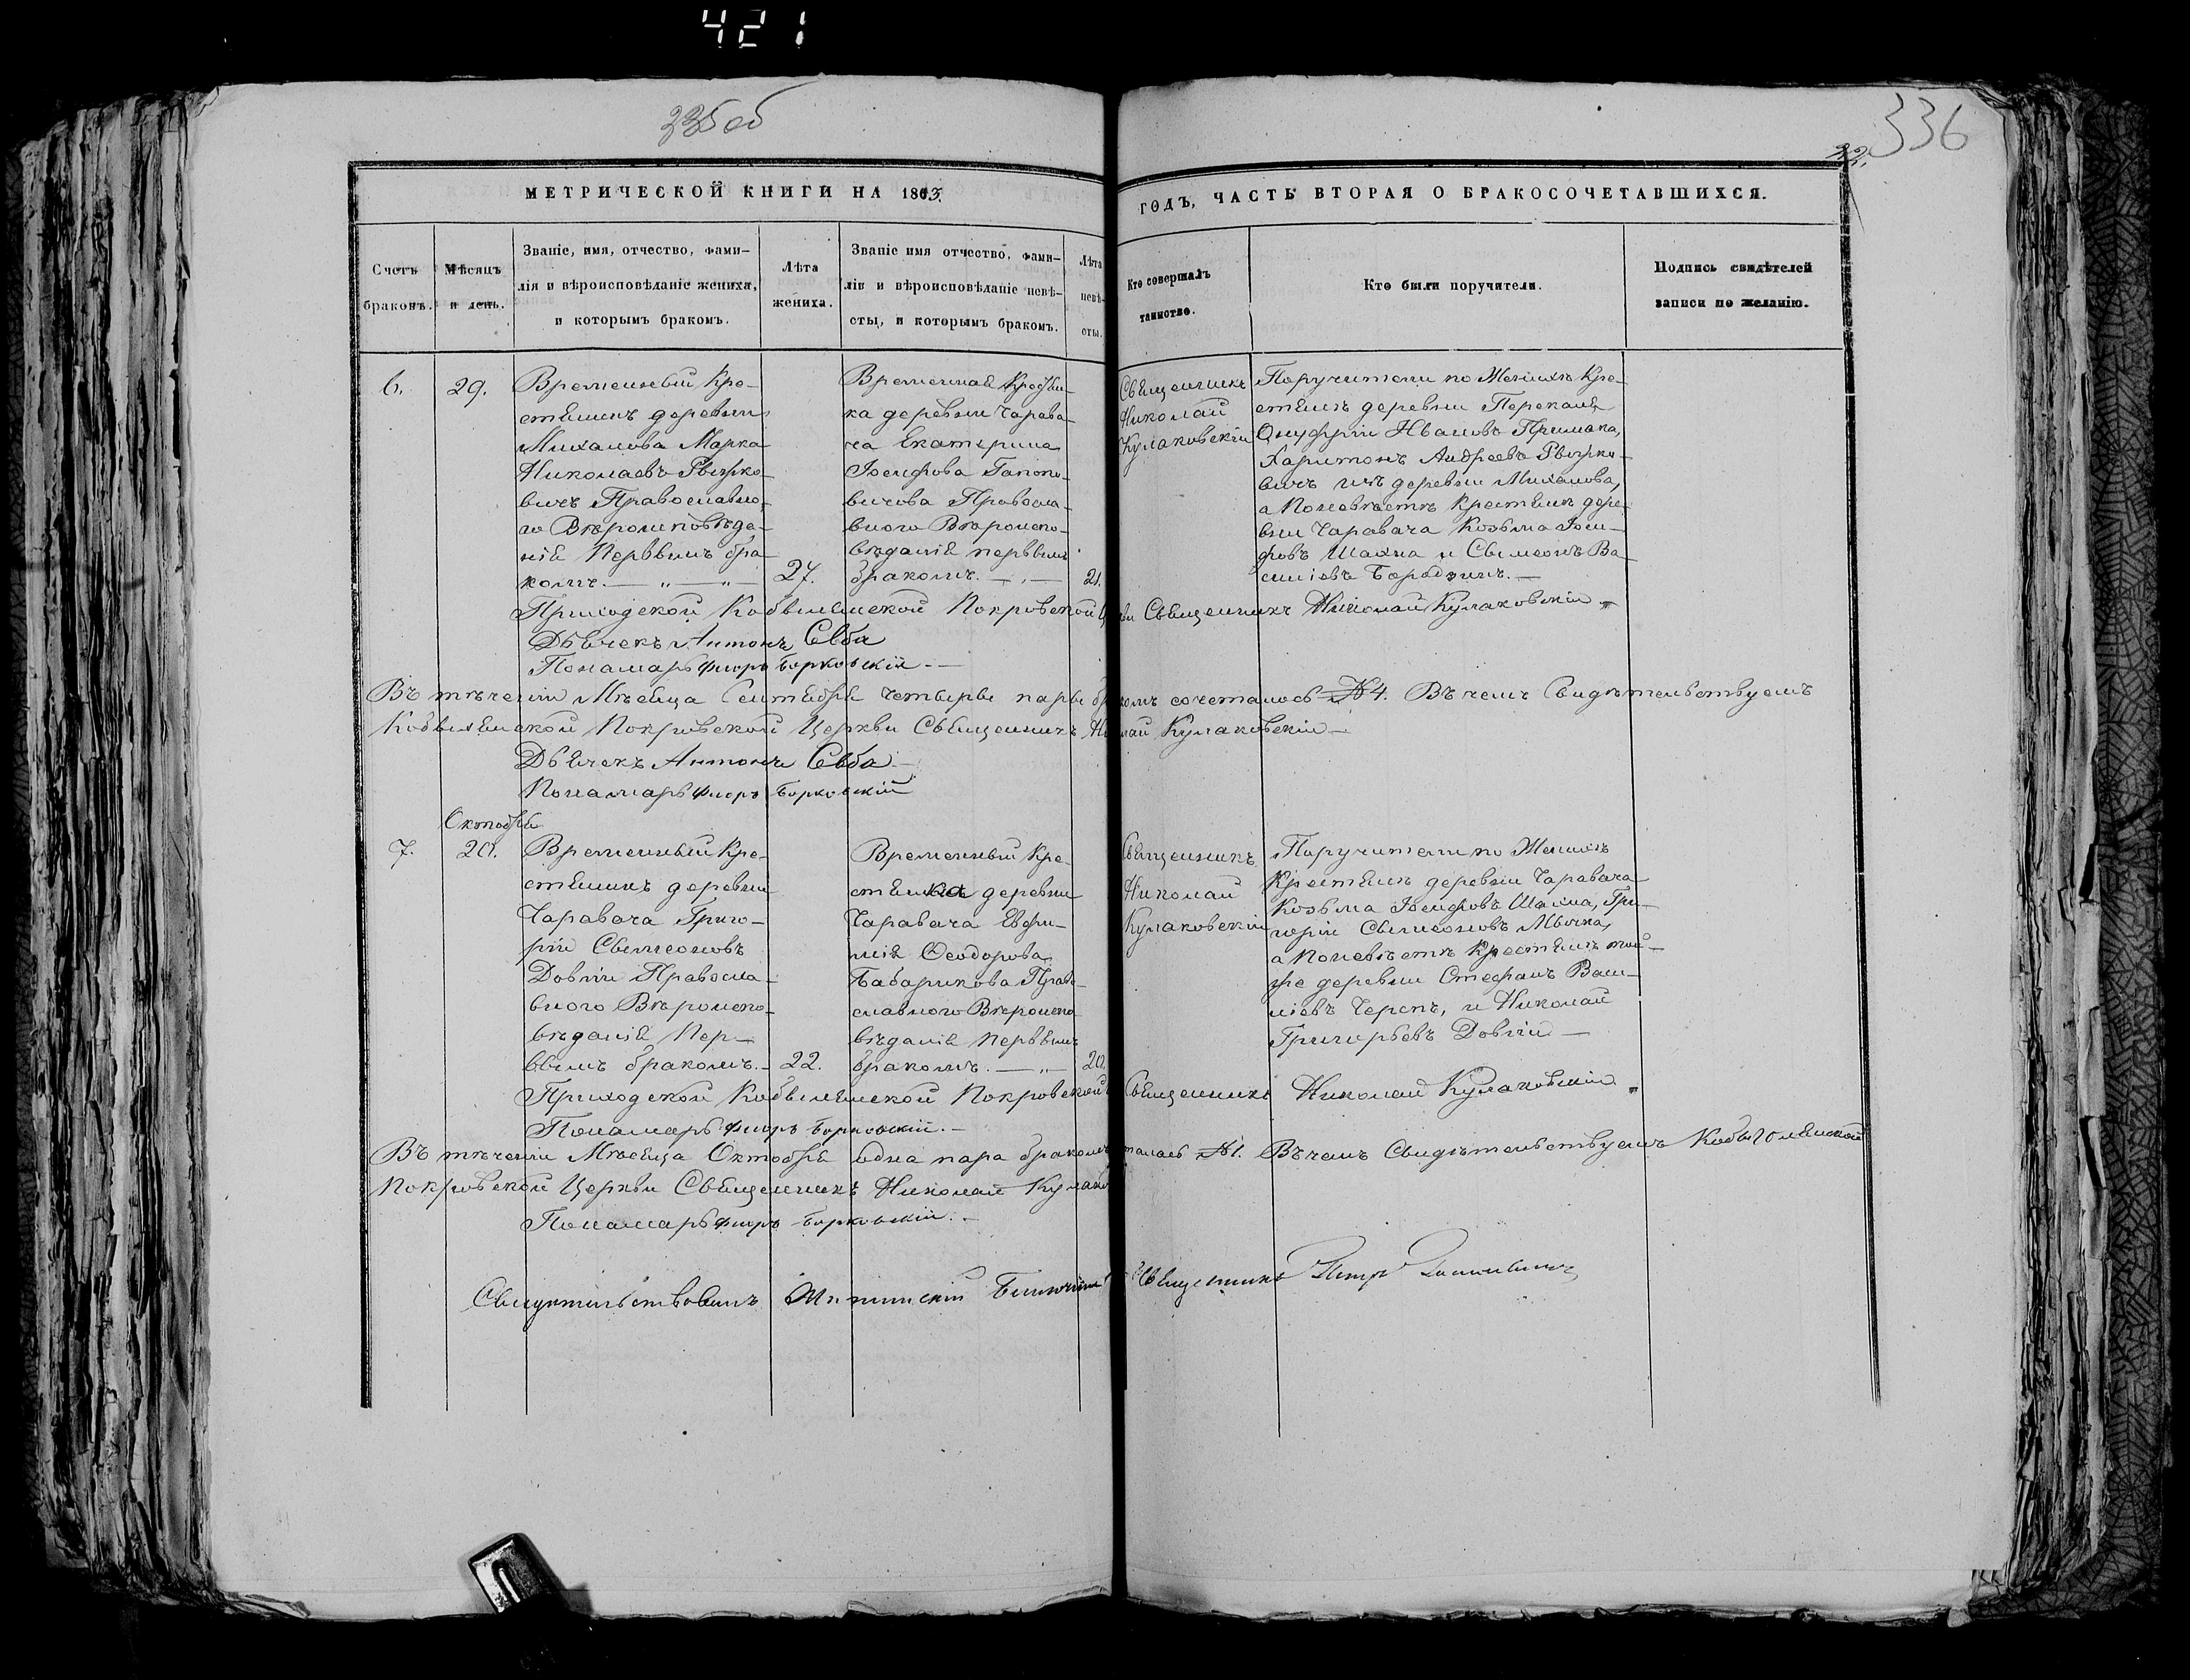 421
335 об
336
22.
МЕТРИЧЕСКОЙ КНИГИ НА 1863.
ГОДЪ, ЧАСТЬ ВТОРАЯ О БРАКОСОЧЕТАВШИХСЯ.
Счетъ
браковъ.
Мѣсяцъ
и день.
Званіе, имя, отчество, фами-
лія и вѣроисповѣданіе жениха,
и которымъ бракомъ.
Лѣта
жениха.
Званіе имя отчество, фами-
лія и вѣроисповѣданіе невѣ-
сты, и которымъ бракомъ.
Лѣта
невѣ-
сты.
Кто совершалъ
таинство.
Кто были поручители.
Подпись свидѣтелей
записи по желанію.
6.
29.
Временный Кре-
стьянинъ деревни
Миханова Марка
Николаевъ
вичъ Православно-
го Вѣроисповѣда-
нія Первымъ бра-
комъ. — „ — „ —
27.
Временная Крестьян-
ка деревни Чарава-
ча Екатерина
Іосифова Гапоно-
вичова Правосла-
вного Вѣроиспо-
вѣданія первымъ
бракомъ. — „ —
21.
Священникъ
Николай
Кулаковскій
Поручители по Женихѣ Кре-
стьянъ деревни
Онуфрій Ивановъ Примака,
Харитонъ Андреевъ
вичъ изъ деревни Миханова,
а По невѣстѣ Крестьянъ дере-
вни Чаравача Козьма Іоси-
фовъ Шахна и Свимеонъ Ва-
силіевъ Бародзинъ. —
Приходской Кобылянской Покровской Церкви Священникъ Николай Кулаковскій
Дьячекъ Антонъ
Понамарь Флоръ Борковскій —
Въ теченіи Мѣсяца Сентября Четыре пары бракомъ сочеталось № 4. Въ чемъ Свидѣтельствуемъ
Кобылянской Покровской Церкви Священникъ Николай Кулаковскій —
Дьячекъ Антонъ
Понамарь Флоръ Борковскій
Октября
7.
20.
Временный Кре-
стьянинъ деревни
Чаравача Григо-
рій Свимеоновъ
Довгій Правосла-
вного Вѣроиспо-
вѣданія Пер-
вымъ бракомъ. —
22.
Временный Кре-
стьянка деревни
Чаравача Евфи-
мія Ѳеодорова
Бабарикова Право-
славного Вѣроиспо-
вѣданія Первымъ
бракомъ. — „ —
20.
Священникъ
Николай
Кулаковскій
Поручители по Женихѣ
Крестьянъ деревни Чаравача
Козьма Іосифовъ Шахна, Гри-
горій Свимеоновъ Мычка,
а По невѣстѣ Крестьянъ той-
же деревни Стефанъ Васи-
ліевъ Черепъ, и Николай
Григорьевъ Довгій —
Приходской Кобылянской Покровской Священникъ Николай Кулаковскій
Понамарь Флоръ Борковскій. —
Въ теченіи Мѣсяца Октября Одна пара бракомъ № 1. Въ чемъ Свидѣтельствуемъ Кобылянской
Покровской Церкви Священникъ Николай
Понамарь Флоръ Борковскій. —
Священникъ Петръ